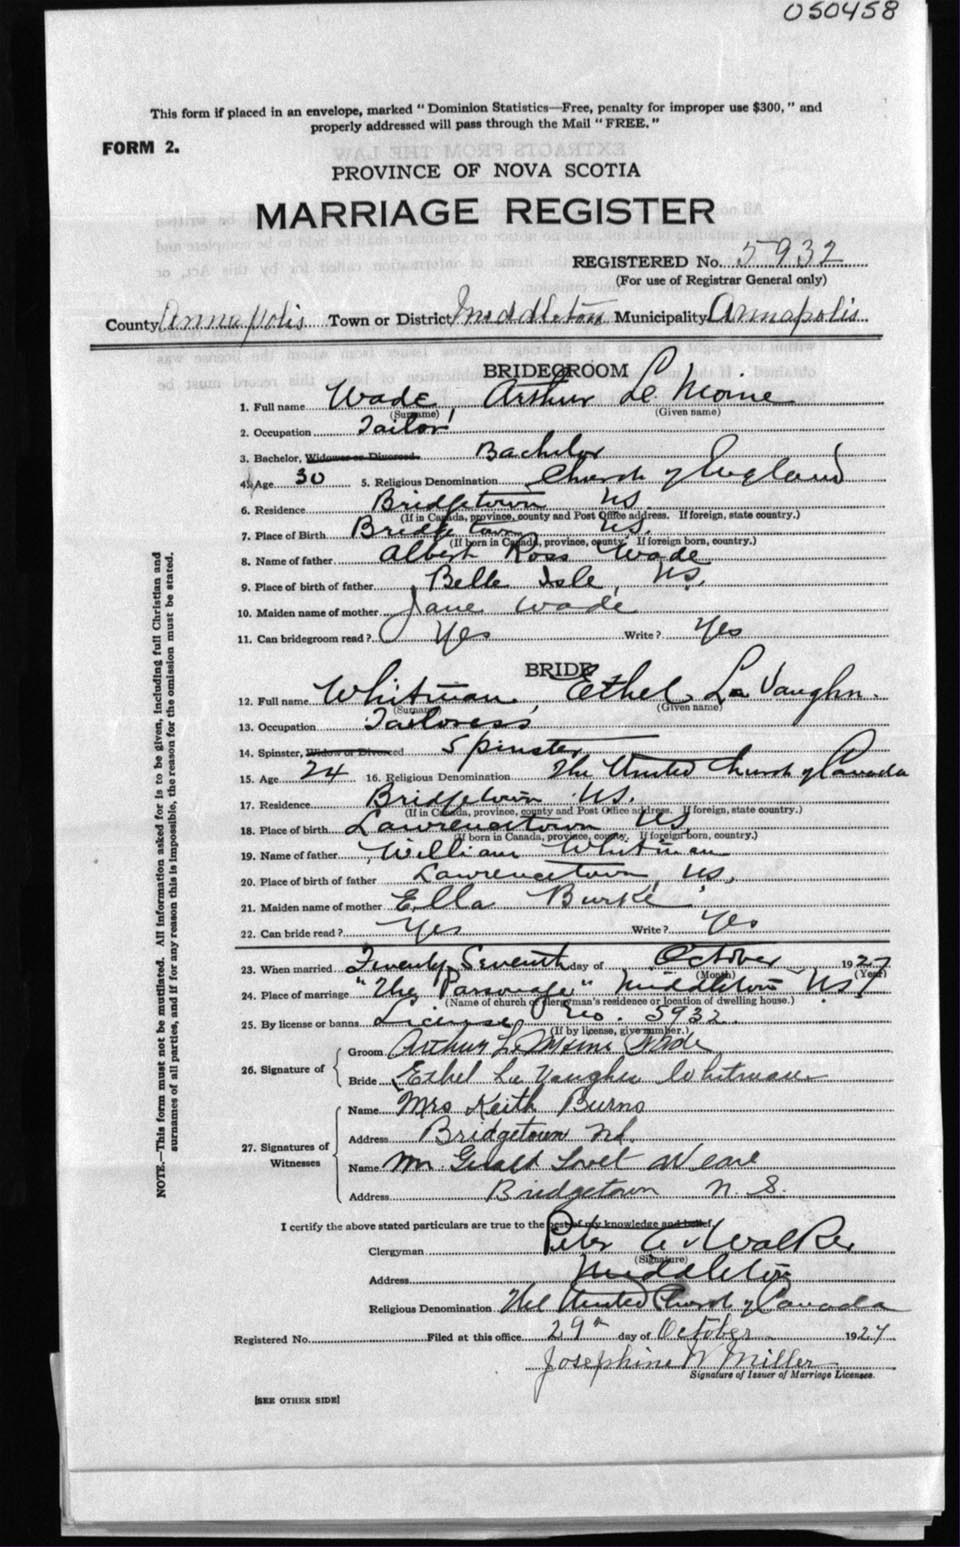 050458
This form if placed in an envelope, marked "Dominion Statistics—Free, penalty for improper use $300," and
properly addressed will pass through the Mail "FREE."
FORM 2.
PROVINCE OF NOVA SCOTIA
MARRIAGE REGISTER
REGISTERED No. 5932
(For use of Registrar General only)
County Annapolis Town or District Middleton Municipality Annapolis
BRIDEGROOM
1. Full name Wade, Arthur Le Moine
(Surname) (Given name)
2. Occupation Tailor
3. Bachelor, Widower or Divorced Bachelor
4. Age 30 5. Religious Denomination Church of England
6. Residence Bridgetown N.S.
(If in Canada, province, county and Post Office address. If foreign, state country.)
7. Place of Birth Bridgetown N.S.
(If born in Canada, province, county. If foreign born, country.)
8. Name of father Albert Ross Wade
9. Place of birth of father Belle Isle, N.S.
10. Maiden name of mother Jane Wade
11. Can bridegroom read? Yes Write? Yes
BRIDE
12. Full name Whitman, Ethel La Vaughn.
(Surname) (Given name)
13. Occupation Tailoress
14. Spinster, Widow or Divorced Spinster
15. Age 24 16. Religious Denomination The United Church of Canada
17. Residence Bridgetown N.S.
(If in Canada, province, county and Post Office address. If foreign, state country.)
18. Place of birth Lawrencetown N.S.
(If born in Canada, province, county. If foreign born, country.)
19. Name of father William Whitman
20. Place of birth of father Lawrencetown, N.S.
21. Maiden name of mother Ella Burke
22. Can bride read? Yes Write? Yes
23. When married Twenty Seventh day of October 1927
(Month) (Year)
24. Place of marriage "The Parsonage" Middleton N.S.
(Name of church or clergyman's residence or location of dwelling house.)
25. By license or banns License No. 5932.
(If by license, give number.)
26. Signature of
Groom Arthur Le Moine Wade
Bride Ethel La Vaughn Whitman
27. Signatures of Witnesses
Name Mrs Keith Burns
Address Bridgetown N.S.
Name Mr. Gerald Lovet Weare
Address Bridgetown N. S.
I certify the above stated particulars are true to the best of my knowledge and belief.
Clergyman Peter A Walker
(Signature)
Address Middleton
Religious Denomination The United Church of Canada
Registered No. Filed at this office 29th day of October 1927
Josephine Miller
Signature of Issuer of Marriage Licenses.
[SEE OTHER SIDE]
NOTE.—This form must not be mutilated. All information asked for is to be given, including full Christian and
surnames of all parties, and if for any reason this is impossible, the reason for the omission must be stated.